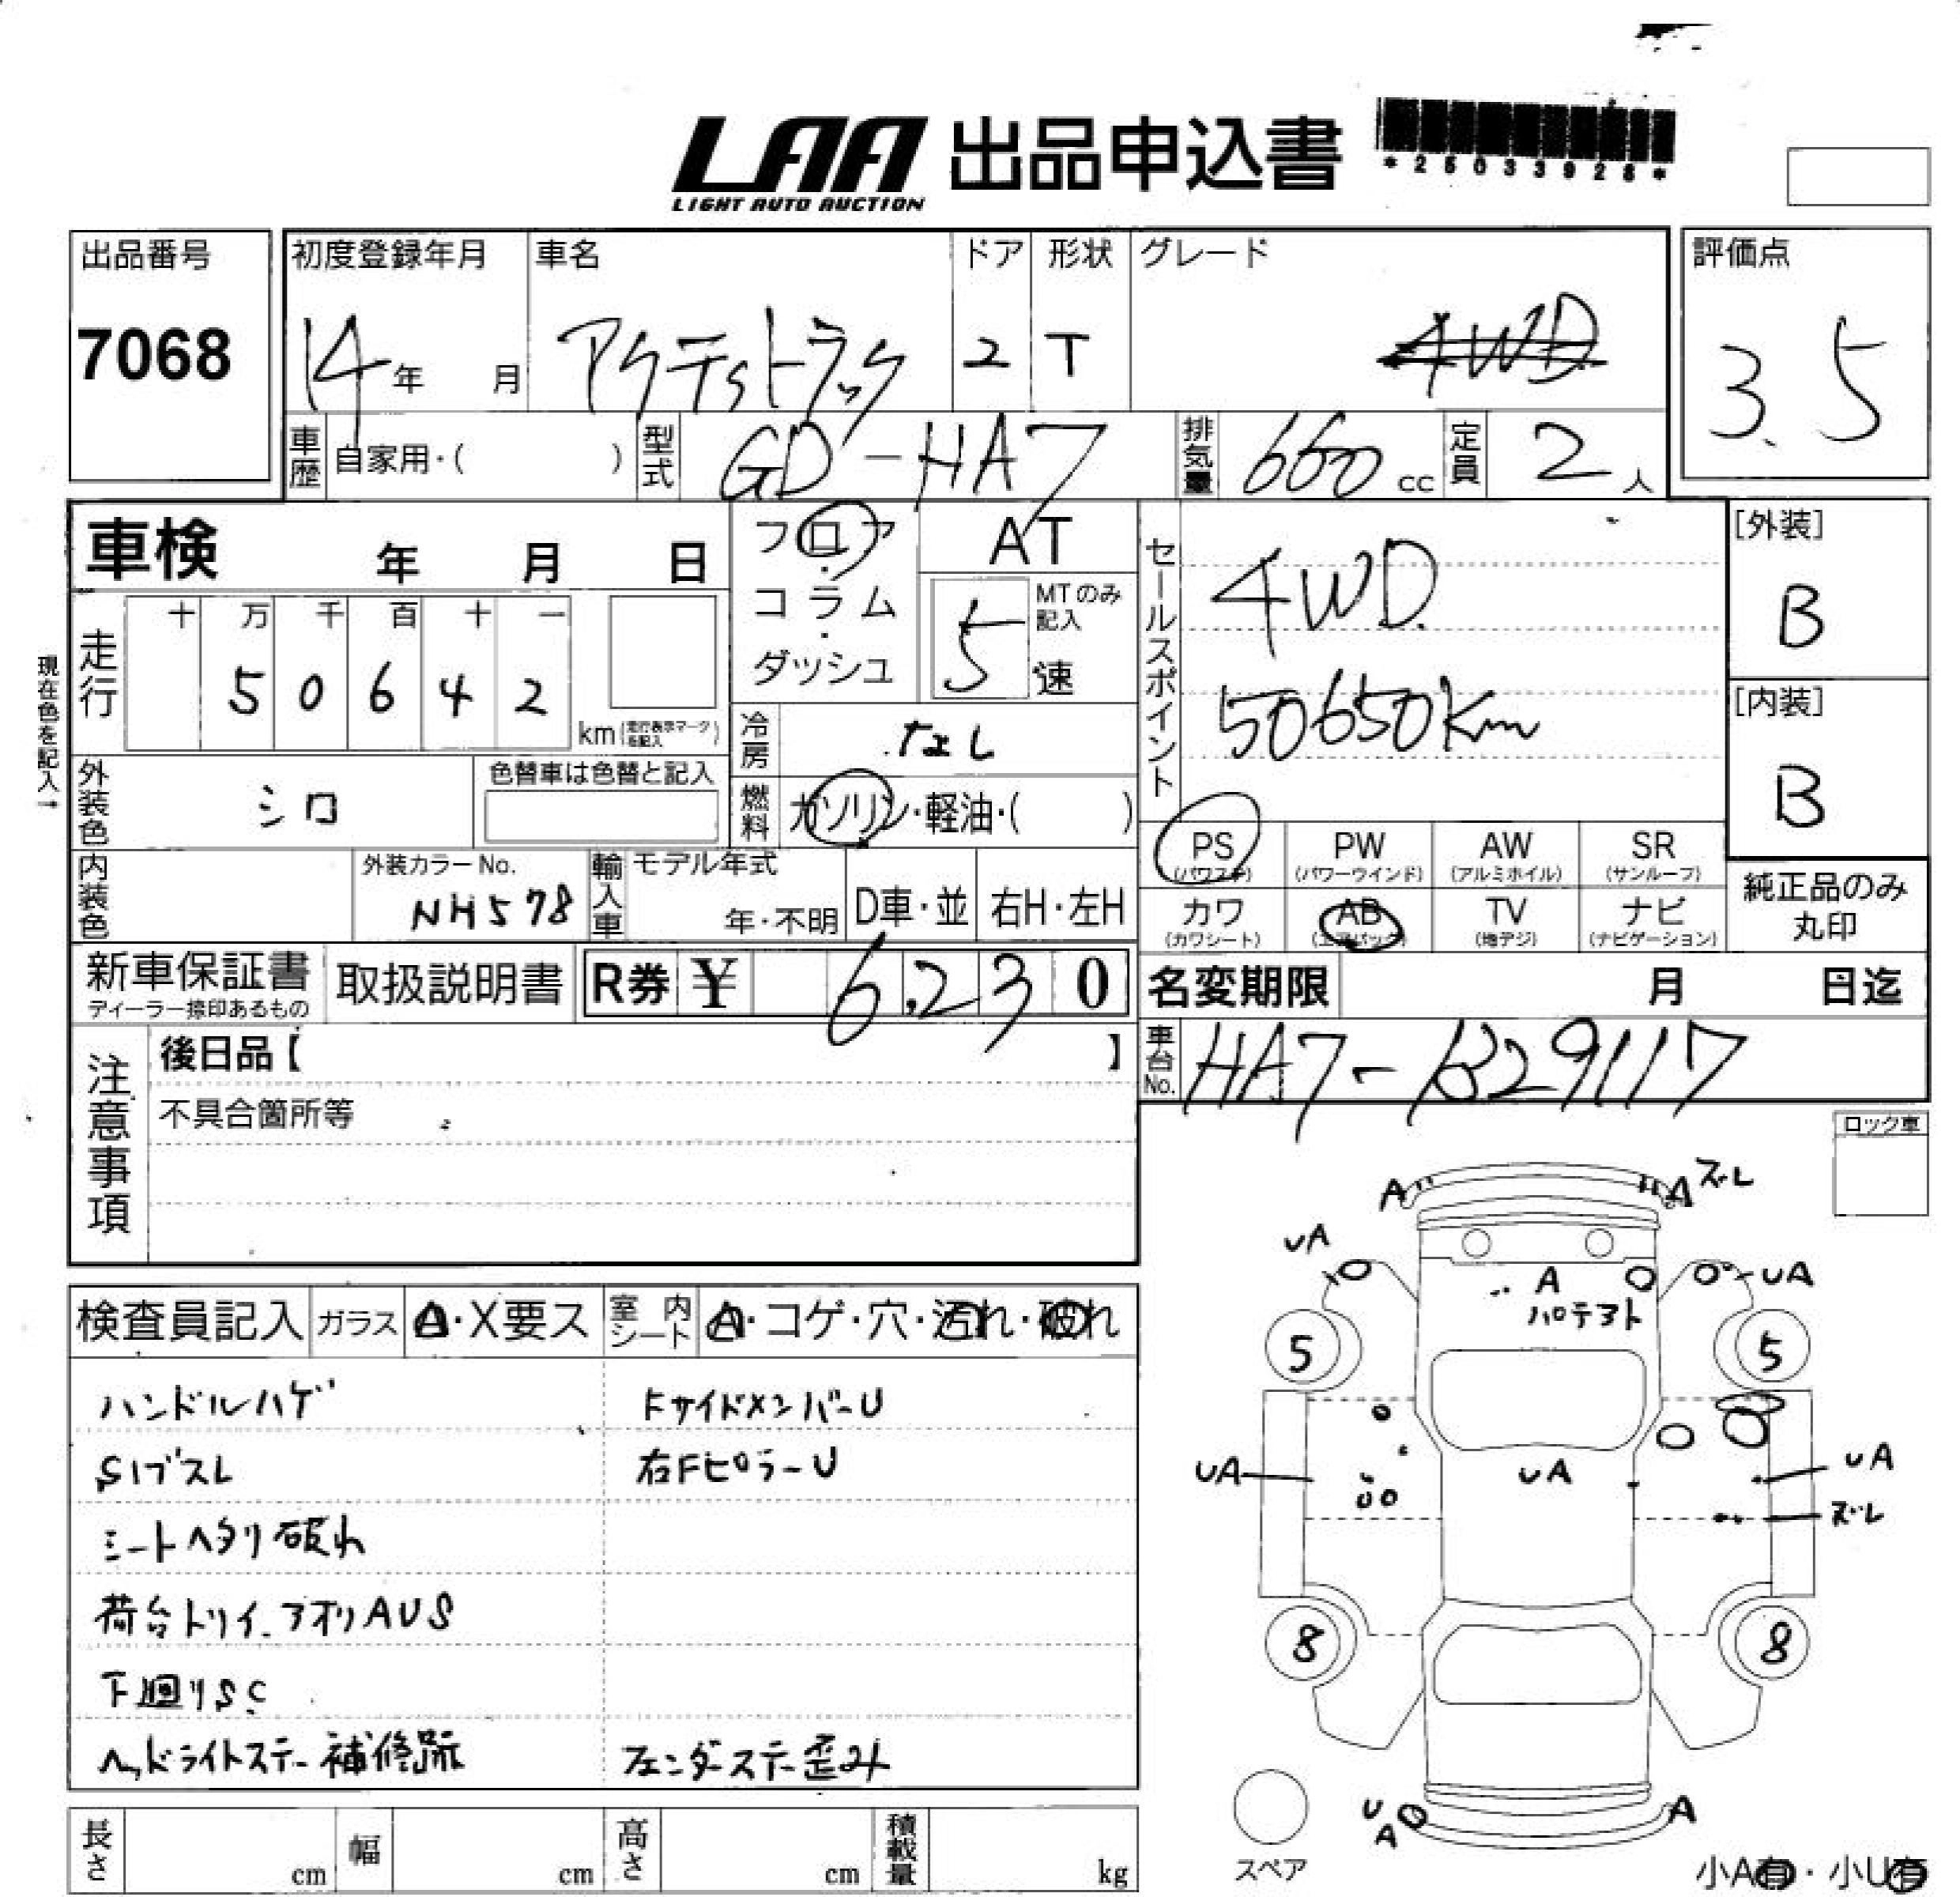 LAA 出品申込書
LIGHT AUTO AUCTION
*25033928*
出品番号
7068
初度登録年月
14年 月
車名
アクティトラック
ドア
2
形状
T
グレード
4WD
評価点
3.5
車歴
自家用・( )
型式
GD-HA7
排気量
660 cc
定員
2人
車検 年 月 日
フロア・コラム・ダッシュ
AT
MTのみ記入
5速
セールスポイント
4WD
50650Km
[外装]
B
[内装]
B
現在色を記入→
走行
十 万 千 百 十 一
5 0 6 4 2
km(走行表示マークを記入)
冷房
なし
外装色
シロ
色替車は色替と記入
燃料
ガソリン・軽油・( )
PS (パワステ)
PW (パワーウインド)
AW (アルミホイル)
SR (サンルーフ)
内装色
外装カラーNo.
NH578
輸入車
モデル年式
年・不明
D車・並
右H・左H
カワ (カワシート)
AB (エアバック)
TV (地デジ)
ナビ (ナビゲーション)
純正品のみ
丸印
新車保証書
ディーラー捺印あるもの
取扱説明書
R券 ¥ 6,230
名変期限 月 日迄
車台No.
HA7-1329117
注意事項
後日品【 】
不具合箇所等
ロック車
検査員記入
ガラス
A・X要ス
室内シート
A・コゲ・穴・汚れ・破れ
ハンドルハゲ
FサイドメンバーU
右FピラーU
シートヘタリ破れ
荷台トリイ.アオリAUS
下廻りSC
ヘッドライトステー補修跡
フェンダーステー歪み
A
A ズレ
UA
A
UA
5
5
UA
UA
UA
ズレ
8
8
スペア
UA
A
長さ cm
幅 cm
高さ cm
積載量 kg
小A有・小U有